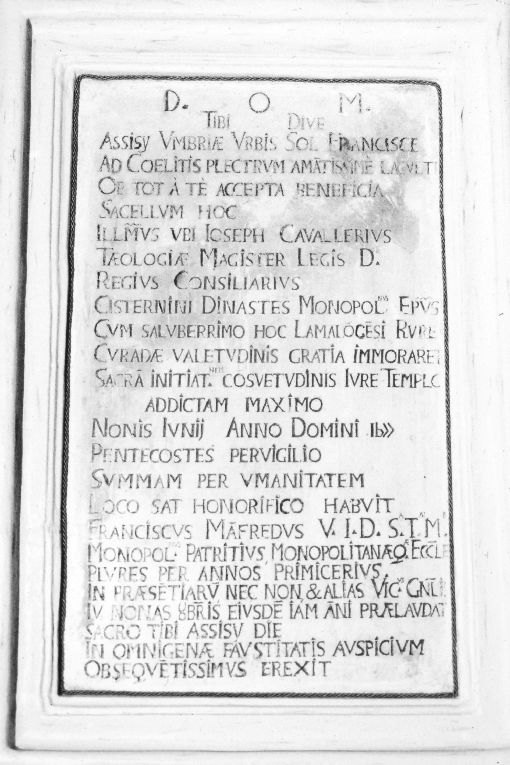 D. O M.
TIBI DIVE
ASSISIJ VMBRIÆ VRBIS SOL FRANCISCE
AD COELITIS PLECTRVM AMĀTISSIMÈ
OB TOT Á TÈ ACCEPTA BENEFICIA
SACELLVM HOC
ILLM̃VS VBI IOSEPH CAVALLERIVS
TÆOLOGIÆ MAGISTER LEGIS D.
REGIVS CONSILIARIVS
CISTERNINI DINASTES MONOPOL. EPVS
CVM SALVBERRIMO HOC LAMALOGESI RVRE
CVRADÆ VALETVDINIS GRATIA IMMORARET
SACRĀ INITIAT. COSVETVDINIS IVRE TEMPLO
ADDICTAM MAXIMO
NONIS IVNIJ ANNO DOMINI
PENTECOSTES PERVIGILIO
SVMMAM PER VMANITATEM
LOCO SAT HONORIFICO HABVIT
FRANCISCVS MĀFREDVS V. I. D. S. T. M.
MONOPOL. PATRITIVS MONOPOLITANÆQ. ECCLE
PLVRES PER ANNOS PRIMICERIVS
IN PRÆSĒTIARV̄ NEC NON & ALIAS VIC. GNL̃IS
IV NONAS 8BRIS EIVSDĒ IAM ĀNI PRÆLAVDAT
SACRO TIBI ASSISV DIE
IN OMNIGENÆ FAVSTITATIS AVSPICIVM
OBSEQVĒTISSIMVS EREXIT